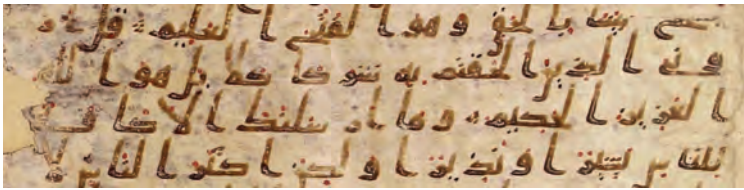 يفتح بيننا بالحق وهو الفتح العليم قل ار
ونى الذين الحقتم به شركا كلا بل هو الله
العزيز الحكيم وما ارسلنك الا كافة
للناس بشيرا ونذيرا ولكن اكثر الناس لا